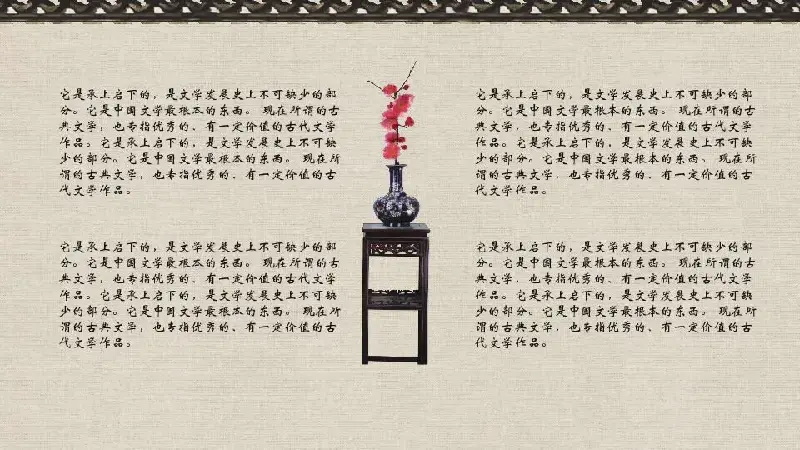 它是承上启下的，是文学发展史上不可缺少的部
分。它是中国文学最根本的东西。 现在所谓的古
典文学，也专指优秀的、有一定价值的古代文学
作品。它是承上启下的，是文学发展史上不可缺
少的部分。它是中国文学最根本的东西。 现在所
谓的古典文学，也专指优秀的、有一定价值的古
代文学作品。
它是承上启下的，是文学发展史上不可缺少的部
分。它是中国文学最根本的东西。 现在所谓的古
典文学，也专指优秀的、有一定价值的古代文学
作品。它是承上启下的，是文学发展史上不可缺
少的部分。它是中国文学最根本的东西、 现在所
谓的古典文学，也专指优秀的、有一定价值的古
代文学作品。
它是承上启下的，是文学发展史上不可缺少的部
分。它是中国文学最根本的东西。 现在所谓的古
典文学，也专指优秀的、有一定价值的古代文学
作品。它是承上启下的，是文学发展史上不可缺
少的部分。它是中国文学最根本的东西。 现在所
谓的古典文学，也专指优秀的、有一定价值的古
代文学作品。
它是承上启下的，是文学发展史上不可缺少的部
分。它是中国文学最根本的东西。 现在所谓的古
典文学，也专指优秀的、有一定价值的古代文学
作品。它是承上启下的，是文学发展史上不可缺
少的部分。它是中国文学最根本的东西。 现在所
谓的古典文学，也专指优秀的、有一定价值的古
代文学作品。